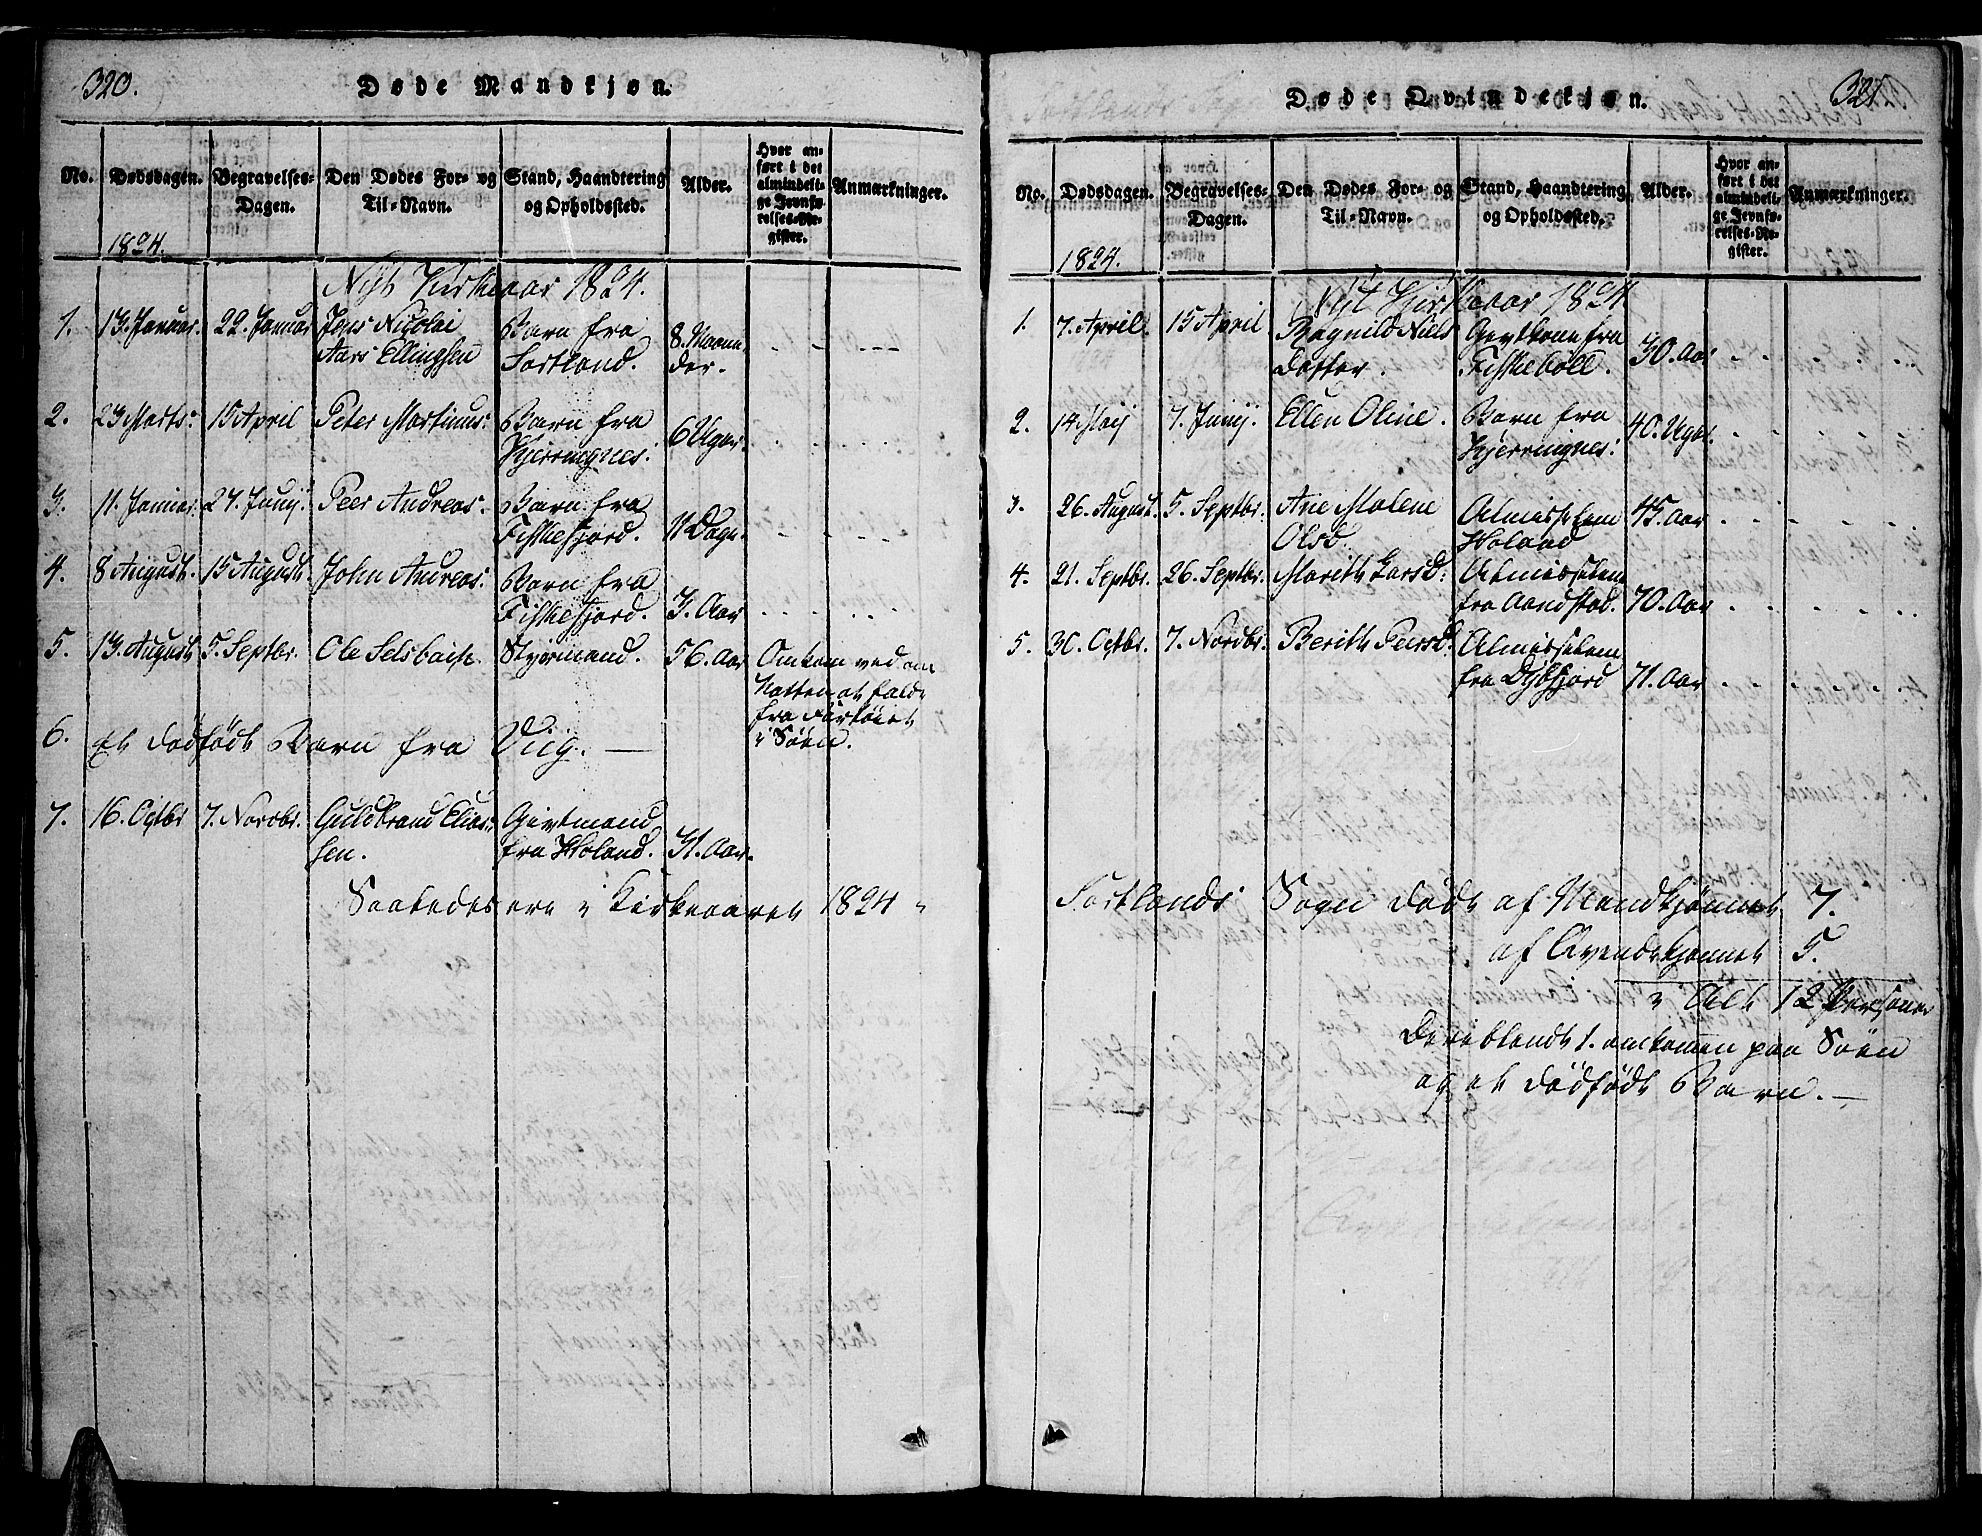 320.
Døde Mandkjøn.
No. Dødsdagen. Begravelses-Dagen. Den Dødes For- og Til-Navn. Stand, Haandtering og Opholdssted. Alder. Hvor anført i det almindelige Jevnførelses-Register. Anmærkninger.
1824.
Nyt Kirkeaar 1824.
1. 13. Januar. 22. Januar Jens Nicolai Barn fra 8. Maane
Aars Ellingsen Sortland. der.
2. 23 Marts: 15 April Peter Martinus: Barn fra 6 Uger.
Kjerringnes.
3. 11. Januar. 27. Junij. Peer Andreas. Barn fra
Fiskefjord. 11 Dage.
4. 8 August. 15 August. John Andreas. Barn fra
Fiskefjord. 3. Aar
5. 13. August 5. Septbr. Ole Selsbach. Styrmand. 56. Aar Omkom ved om
Natten at falde
fra Fartöiet
i Söen.
6. Et dödfödt Barn fra Viig. —
7. 16. Octbr 7. Novbr. Guldbrand Elias- Givtmand
sen. fra Holand. 31. Aar.
Saaledes ere i Kirkeaaret 1824
321
Døde Qvindekjøn.
No. Dødsdagen. Begravelses-Dagen. Den Dødes For- og Til-Navn. Stand, Haandtering og Opholdssted. Alder. Hvor anført i det almindelige Jevnførelses-Register. Anmærkninger.
1824.
Nyt Kirkeaar 1824
1. 7. April. 15 April Ragnild Niels Givtkone fra 30. Aar
Datter. Fiskeböll.
2. 14 Maij 7. Junij. Ellen Oline. Barn fra 40. Uger.
Kjerringnes:
3. 26. August. 5. Septbr. Ane Malene Almisselem 45. Aar
Olsd. Holand
4. 21. Septbr. 26. Septbr. Marith Larsd: Almisselem
fra Aandstad. 70. Aar
5. 30. Octbr. 7. Novbr. Berith Peersd: Almisselem
fra Dybfjord 71. Aar
Sortlands Sogn döde af Mandkjönnet 7.
af Qvindekjönnet 5.
i Alt 12 Personer
Deriblandt 1. omkommen paa Söen
og et dödfödt Barn. —